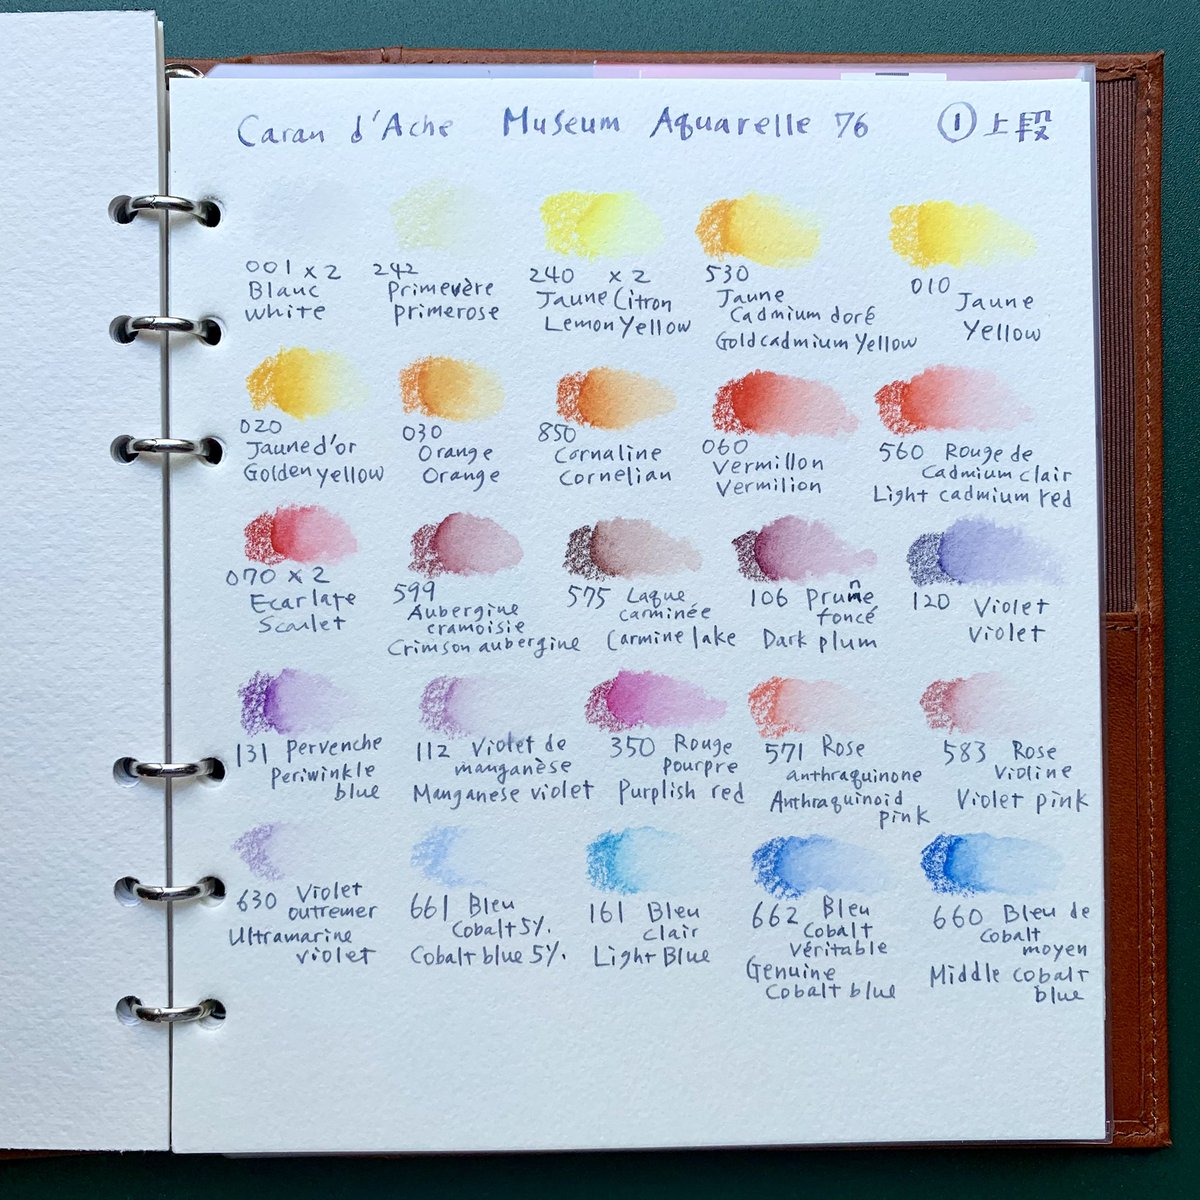 Caran d'Ache Museum Aquarelle 76 ①上段
001 x 2
Blanc
White
242
Primevère
primerose
240 x 2
Jaune Citron
Lemon Yellow
530
Jaune
Cadmium doré
Goldcadmium Yellow
010
Jaune
Yellow
020
Jaune d'or
Golden yellow
030
Orange
Orange
850
Cornaline
Cornelian
060
Vermillon
Vermilion
560 Rouge de
Cadmium clair
Light cadmium red
070 x 2
Ecarlate
Scarlet
599
Aubergine
cramoisie
Crimson aubergine
575 Laque
carminée
Carmine lake
106 Prune
foncé
Dark plum
120 Violet
Violet
131 Pervenche
Periwinkle
blue
112 Violet de
manganèse
Manganese violet
350 Rouge
pourpre
Purplish red
571 Rose
anthraquinone
Anthraquinoid
pink
583 Rose
Violine
Violet pink
630 Violet
outremer
Ultramarine
violet
661 Bleu
Cobalt 5%.
Cobalt blue 5%.
161 Bleu
clair
Light Blue
662 Bleu
Cobalt
Véritable
Genuine
Cobalt blue
660 Bleu de
Cobalt
moyen
Middle cobalt
blue